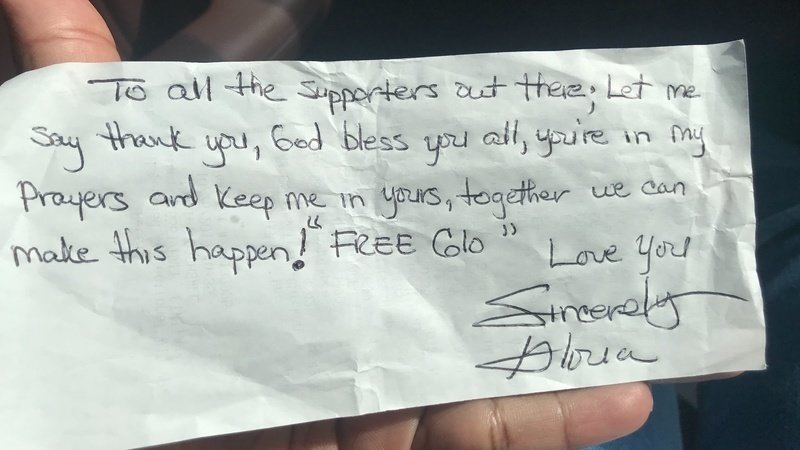 To all the supporters out there; Let me
say thank you, God bless you all, you're in my
Prayers and keep me in yours, together we can
make this happen! "FREE Glo" Love You
Sincerely
Gloria